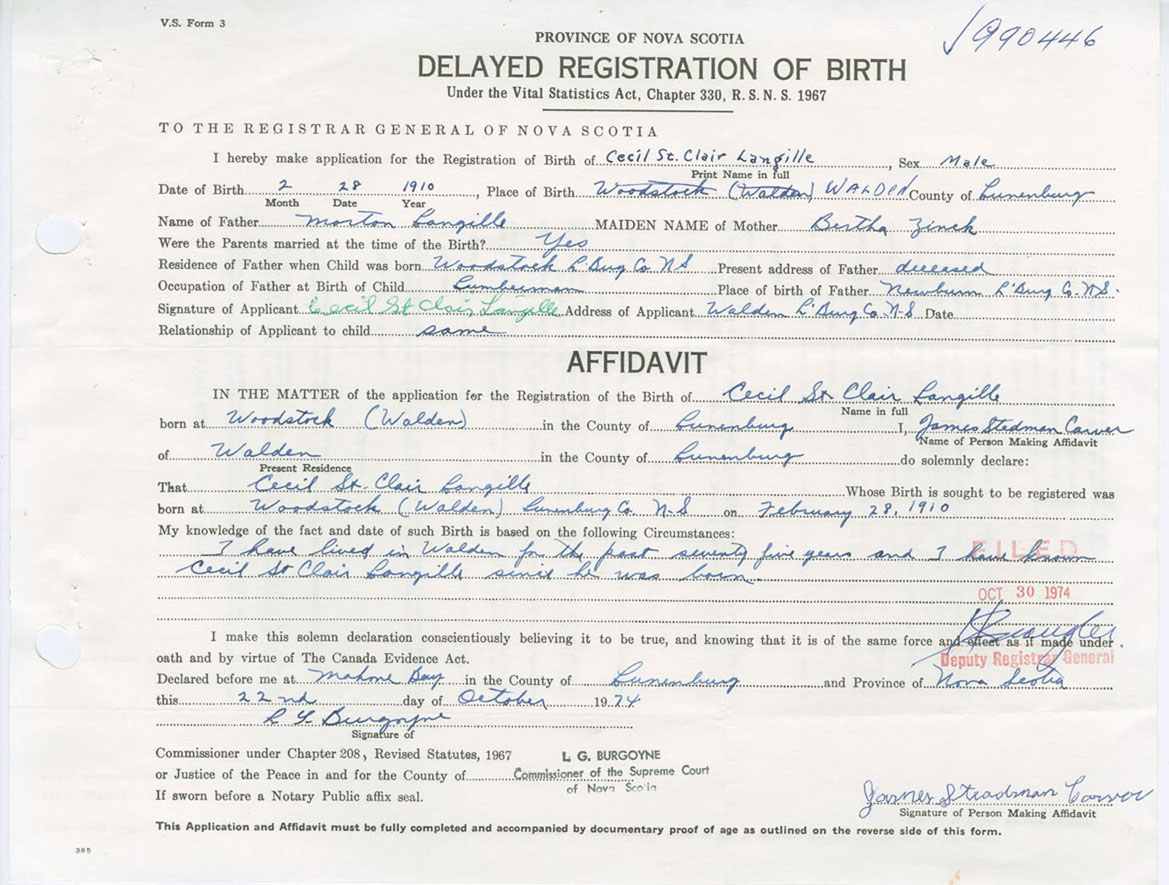 V.S. Form 3
1990446
PROVINCE OF NOVA SCOTIA
DELAYED REGISTRATION OF BIRTH
Under the Vital Statistics Act, Chapter 330, R. S. N. S. 1967
TO THE REGISTRAR GENERAL OF NOVA SCOTIA
I hereby make application for the Registration of Birth of Cecil St. Clair Langille, Sex Male
Print Name in full
Date of Birth 2 28 1910, Place of Birth Woodstock (Walden) WALDEN County of Lunenburg
Month Date Year
Name of Father Morton Langille MAIDEN NAME of Mother Bertha Zinck
Were the Parents married at the time of the Birth? Yes
Residence of Father when Child was born Woodstock L'Burg Co NS Present address of Father deceased
Occupation of Father at Birth of Child Lumberman Place of birth of Father Newburn L'Burg Co. NS.
Signature of Applicant Cecil St Clair Langille Address of Applicant Walden L'Burg Co N-S Date
Relationship of Applicant to child same
AFFIDAVIT
IN THE MATTER of the application for the Registration of the Birth of Cecil St Clair Langille
Name in full
born at Woodstock (Walden) in the County of Lunenburg I, James Stedman Carver
Name of Person Making Affidavit
of Walden in the County of Lunenburg do solemnly declare:
Present Residence
That Cecil St. Clair Langille Whose Birth is sought to be registered was
born at Woodstock (Walden) Lunenburg Co. N-S on February 28, 1910
My knowledge of the fact and date of such Birth is based on the following Circumstances:
I have lived in Walden for the past seventy five years and I have known
FILED
Cecil St Clair Langille since he was born.
OCT 30 1974
I make this solemn declaration conscientiously believing it to be true, and knowing that it is of the same force and effect as if made under
oath and by virtue of The Canada Evidence Act.
Deputy Registrar General
Declared before me at Mahone Bay in the County of Lunenburg and Province of Nova Scotia
this 22nd day of October 1974
L G Burgoyne
Signature of
Commissioner under Chapter 208, Revised Statutes, 1967 L G. BURGOYNE
or Justice of the Peace in and for the County of Commissioner of the Supreme Court
of Nova Scotia
If sworn before a Notary Public affix seal.
James Steadman Carver
Signature of Person Making Affidavit
This Application and Affidavit must be fully completed and accompanied by documentary proof of age as outlined on the reverse side of this form.
385